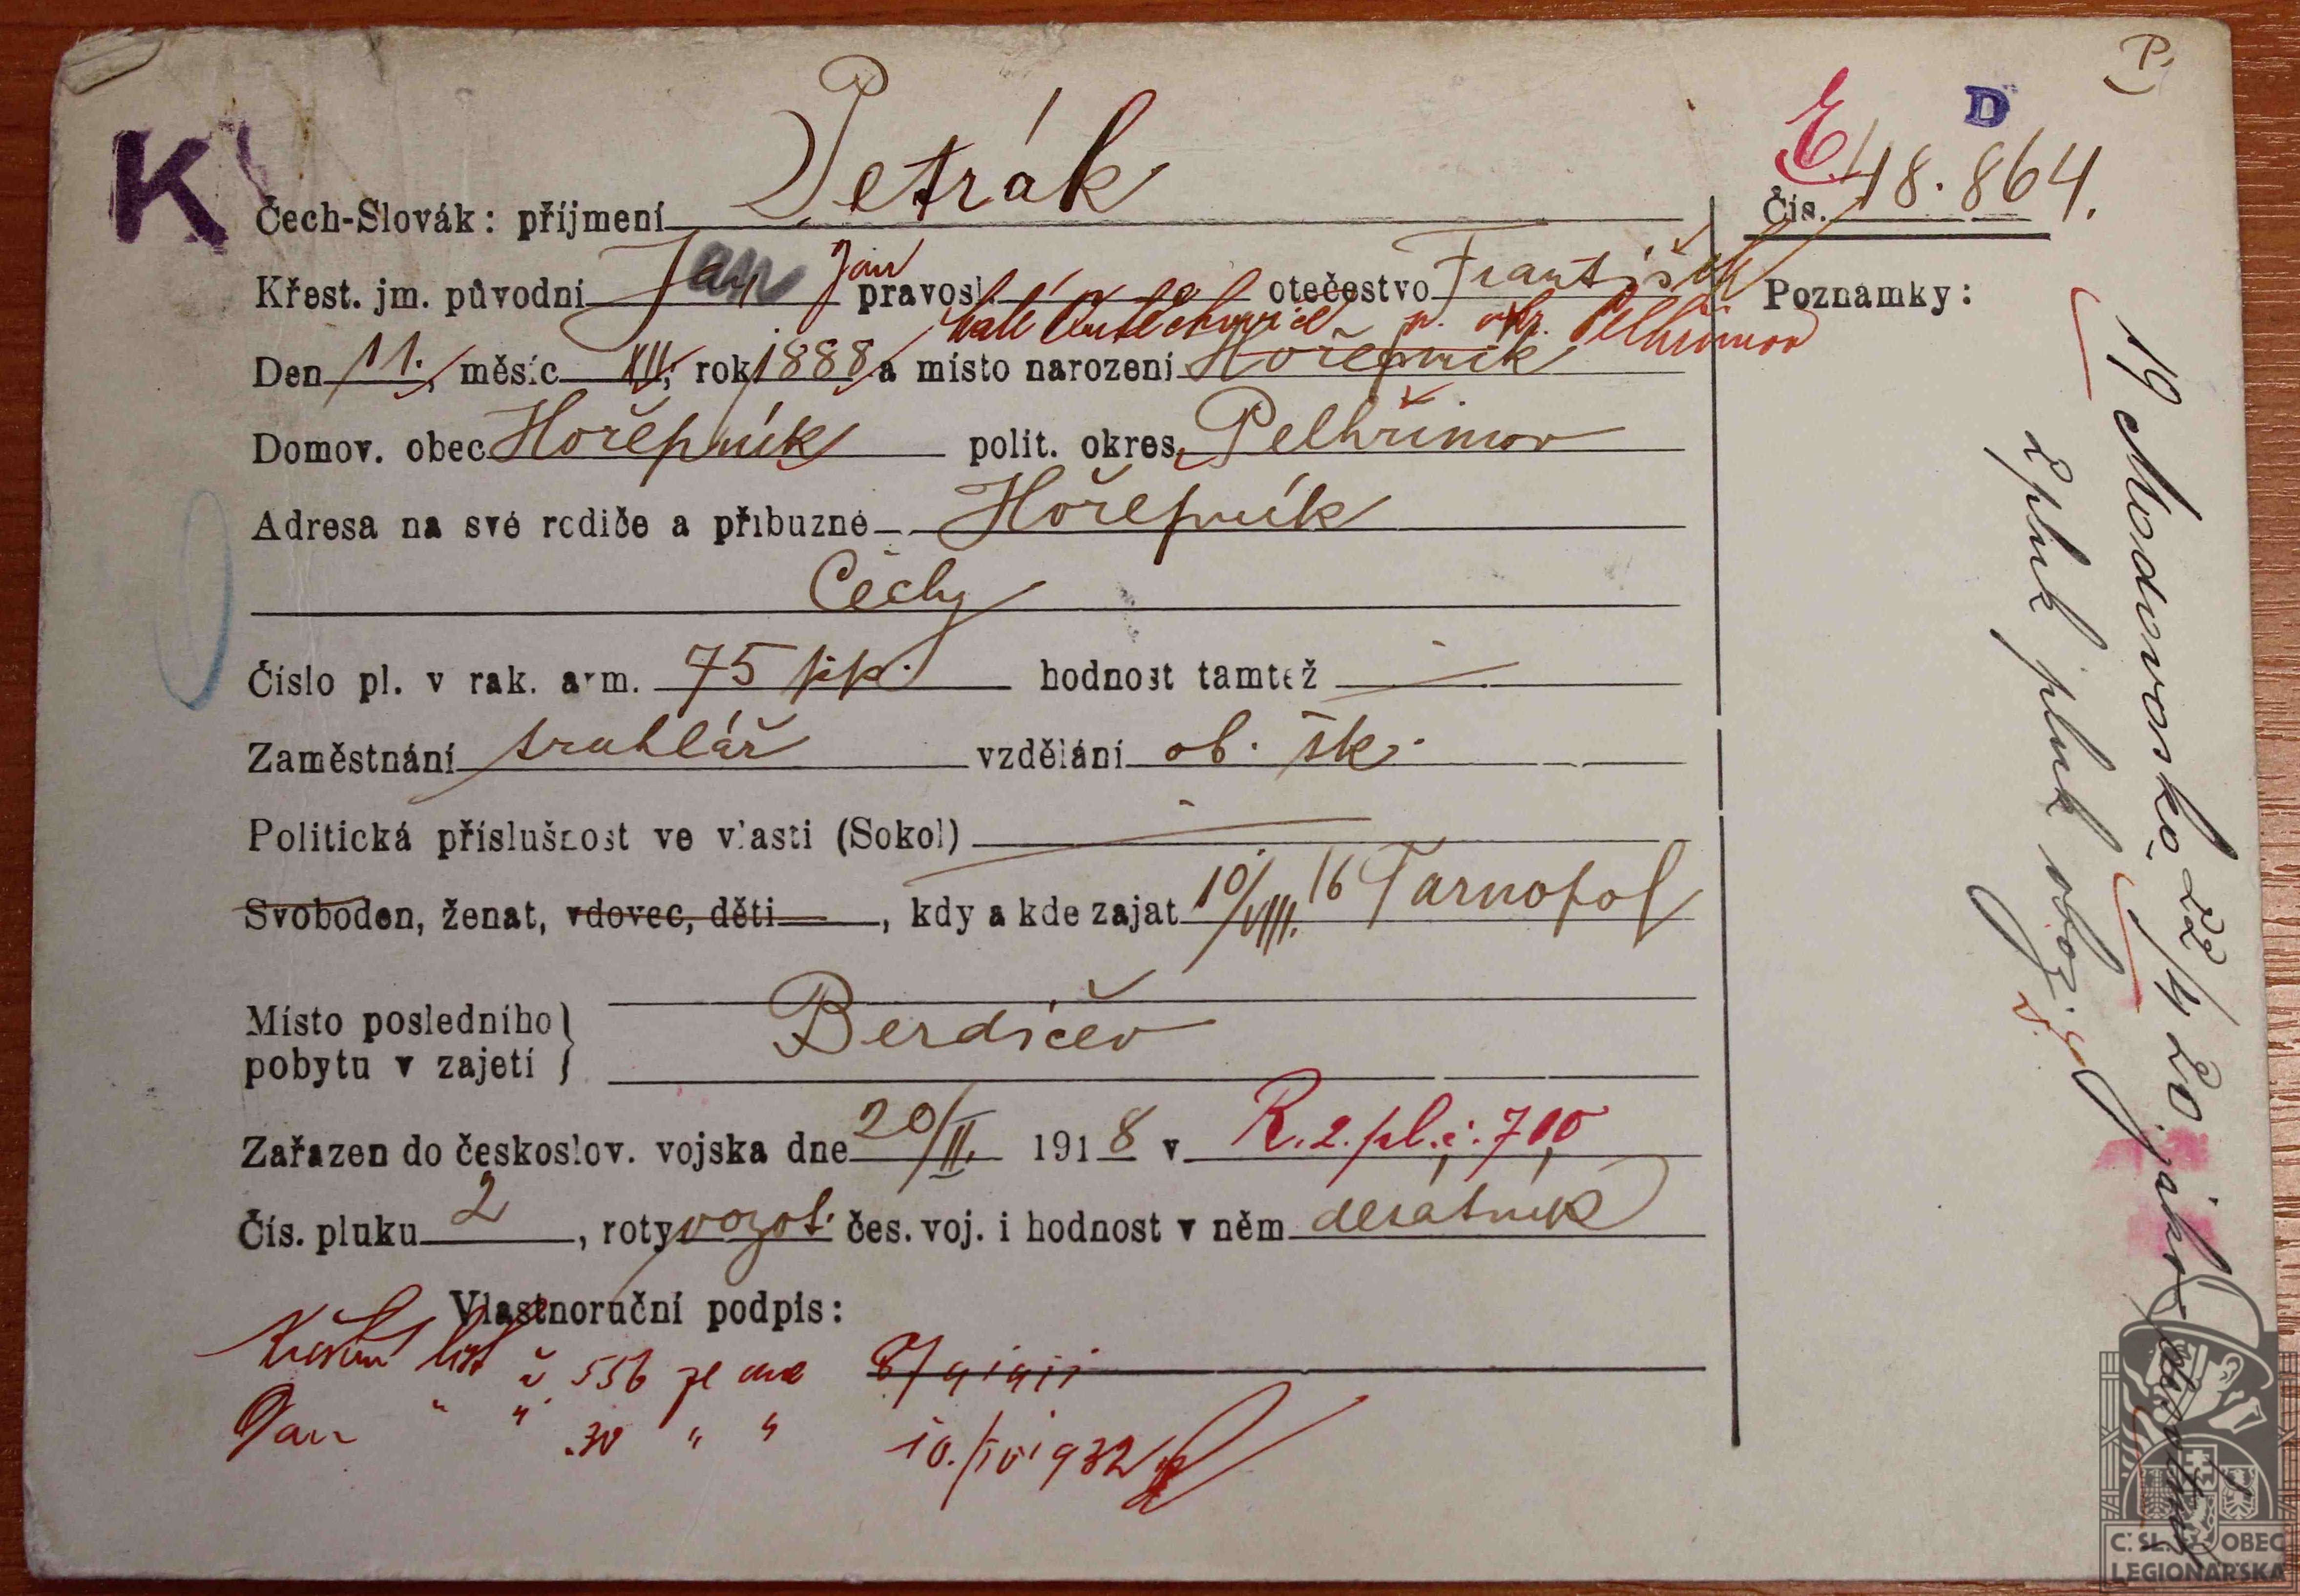 P
K
D
E
Čech-Slovák: příjmení Petrák
Čís. 48.864.
Křest. jm. původní Jan Jan pravosl. otečestvo František
Poznámky:
p. okr. Pelhřimov
Den 11. měsíc XII. rok 1888 a místo narození Hořepník
Domov. obec Hořepník polit. okres Pelhřimov
Adresa na své rodiče a příbuzné Hořepník
Čechy
Číslo pl. v rak. arm. 75 pp. hodnost tamtéž —
Zaměstnání truhlář vzdělání ob. šk.
Politická příslušnost ve vlasti (Sokol) —
Svoboden, ženat, vdovec, děti, kdy a kde zajat 10/VIII. 16 Tarnopol
Místo posledního pobytu v zajetí } Berdičev
Zařazen do českoslov. vojska dne 20/II. 1918 v R. 2. pl. č. 710
Čís. pluku 2, roty vozat. čes. voj. i hodnost v něm desátník
Vlastnoruční podpis:
Křestní list č 556 ze dne
Dom " " 30 " " 10./IV 1932
19 22/4 20 jako
2 pluk
Č. SL. OBEC
LEGIONÁŘSKÁ